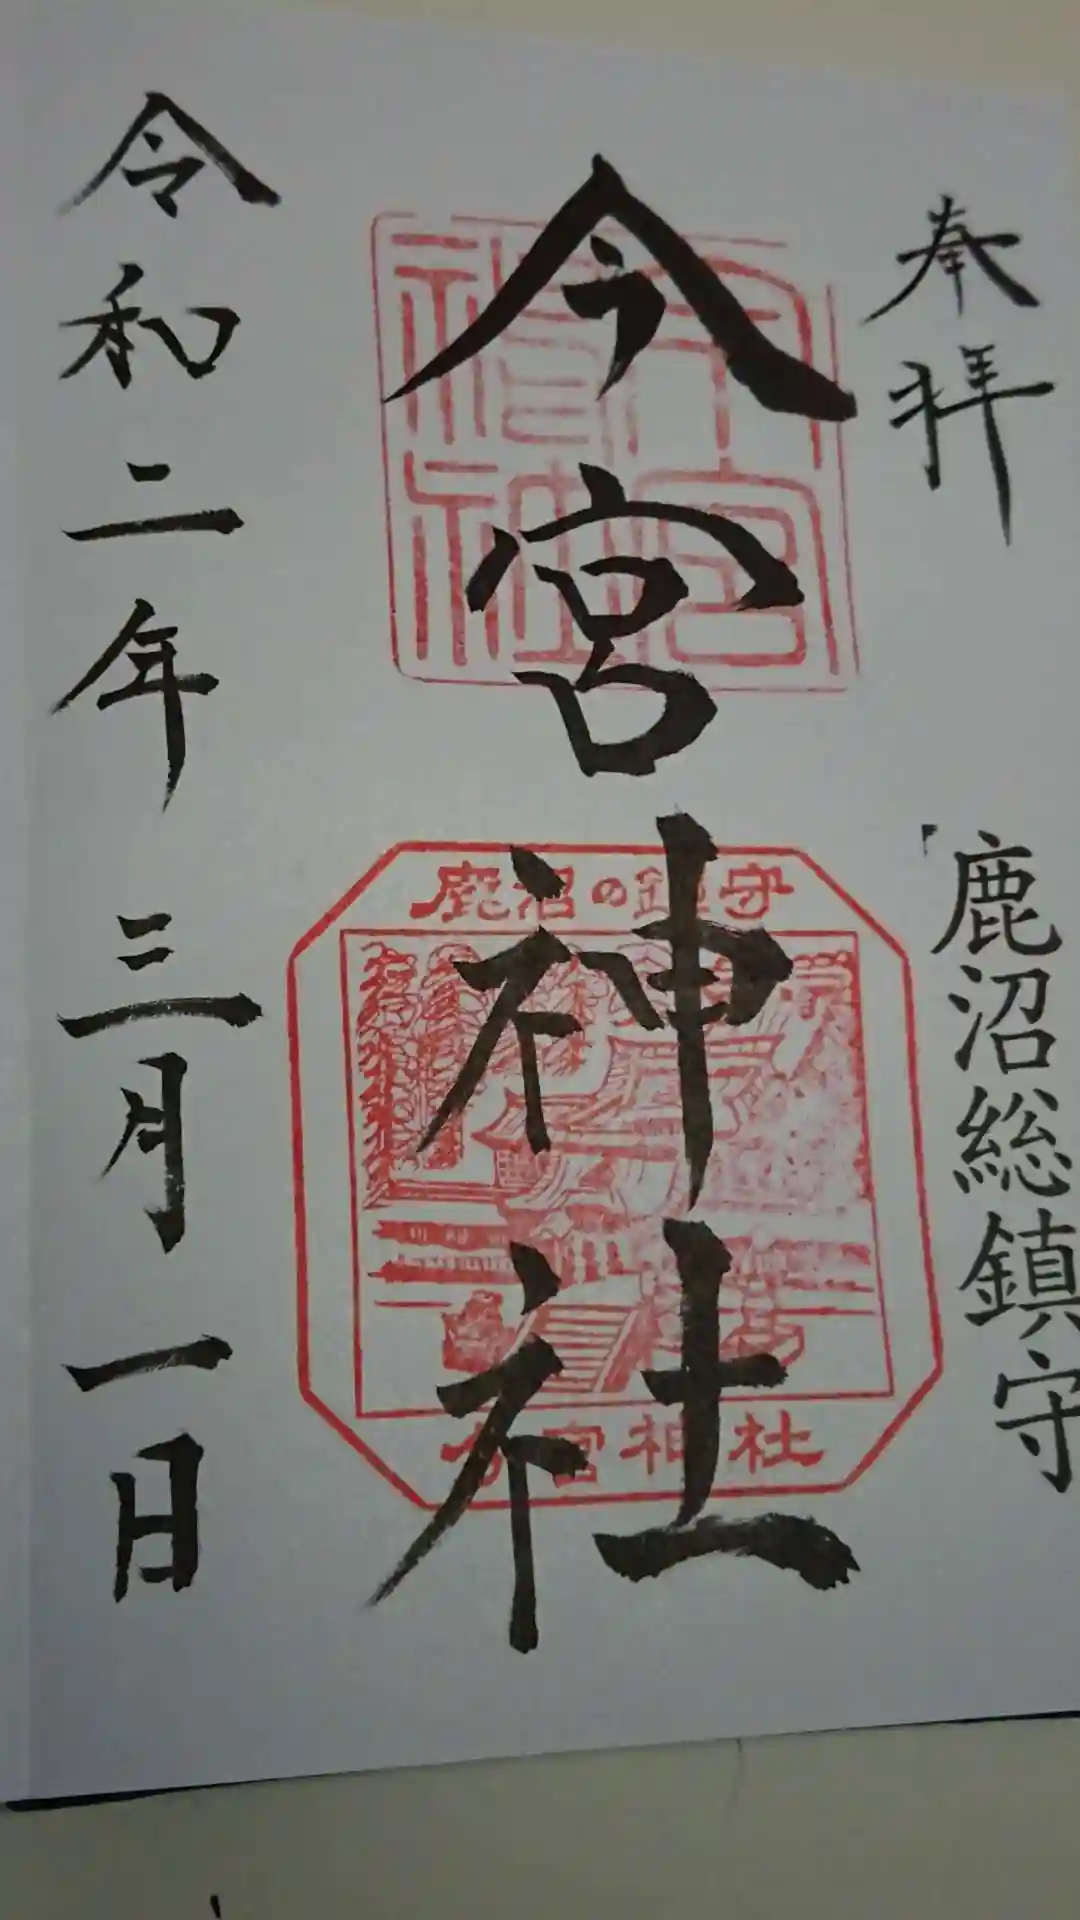 奉拝
鹿沼総鎮守
今宮神社
今宮神社
鹿沼の鎮守
今宮神社
令和二年三月一日